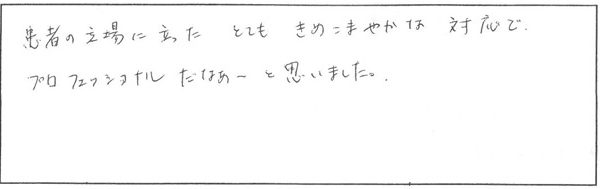 患者の立場に立った とても きめこまやかな 対応で.
プロフェッショナル だなぁ〜と思いました。